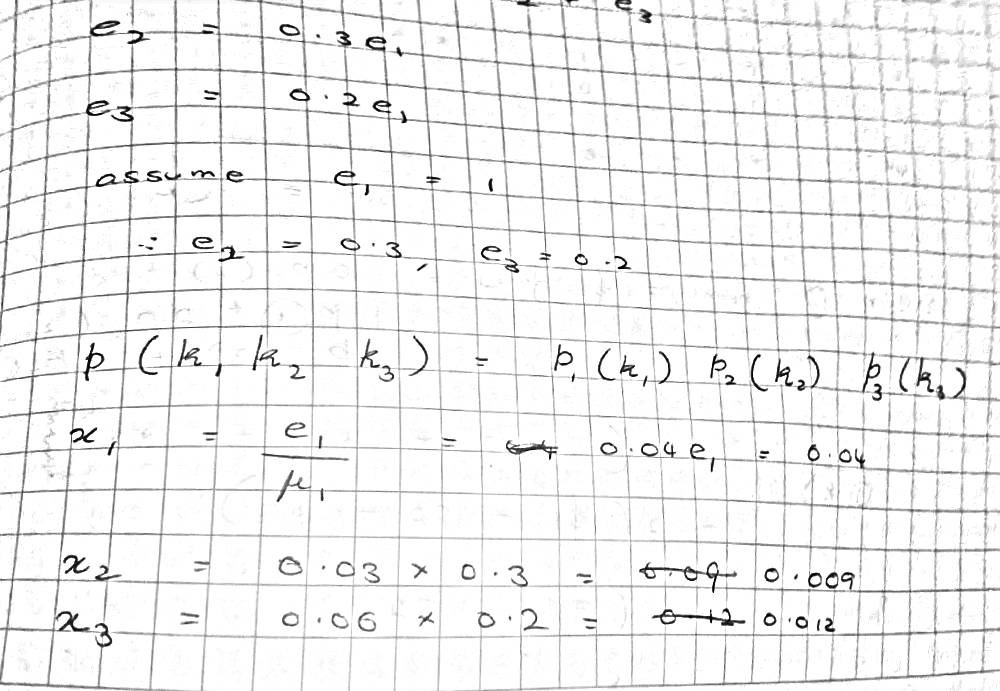 e₃
e₂ = 0.3e₁
e₃ = 0.2e₁
assume e₁ = 1
∴ e₂ = 0.3, e₃ = 0.2
p (k₁ k₂ k₃) = p₁(k₁) p₂(k₂) p₃(k₃)
x₁ = e₁/μ₁ = 0.04e₁ = 0.04
x₂ = 0.03 × 0.3 = ~~0.09~~ 0.009
x₃ = 0.06 × 0.2 = ~~0.12~~ 0.012